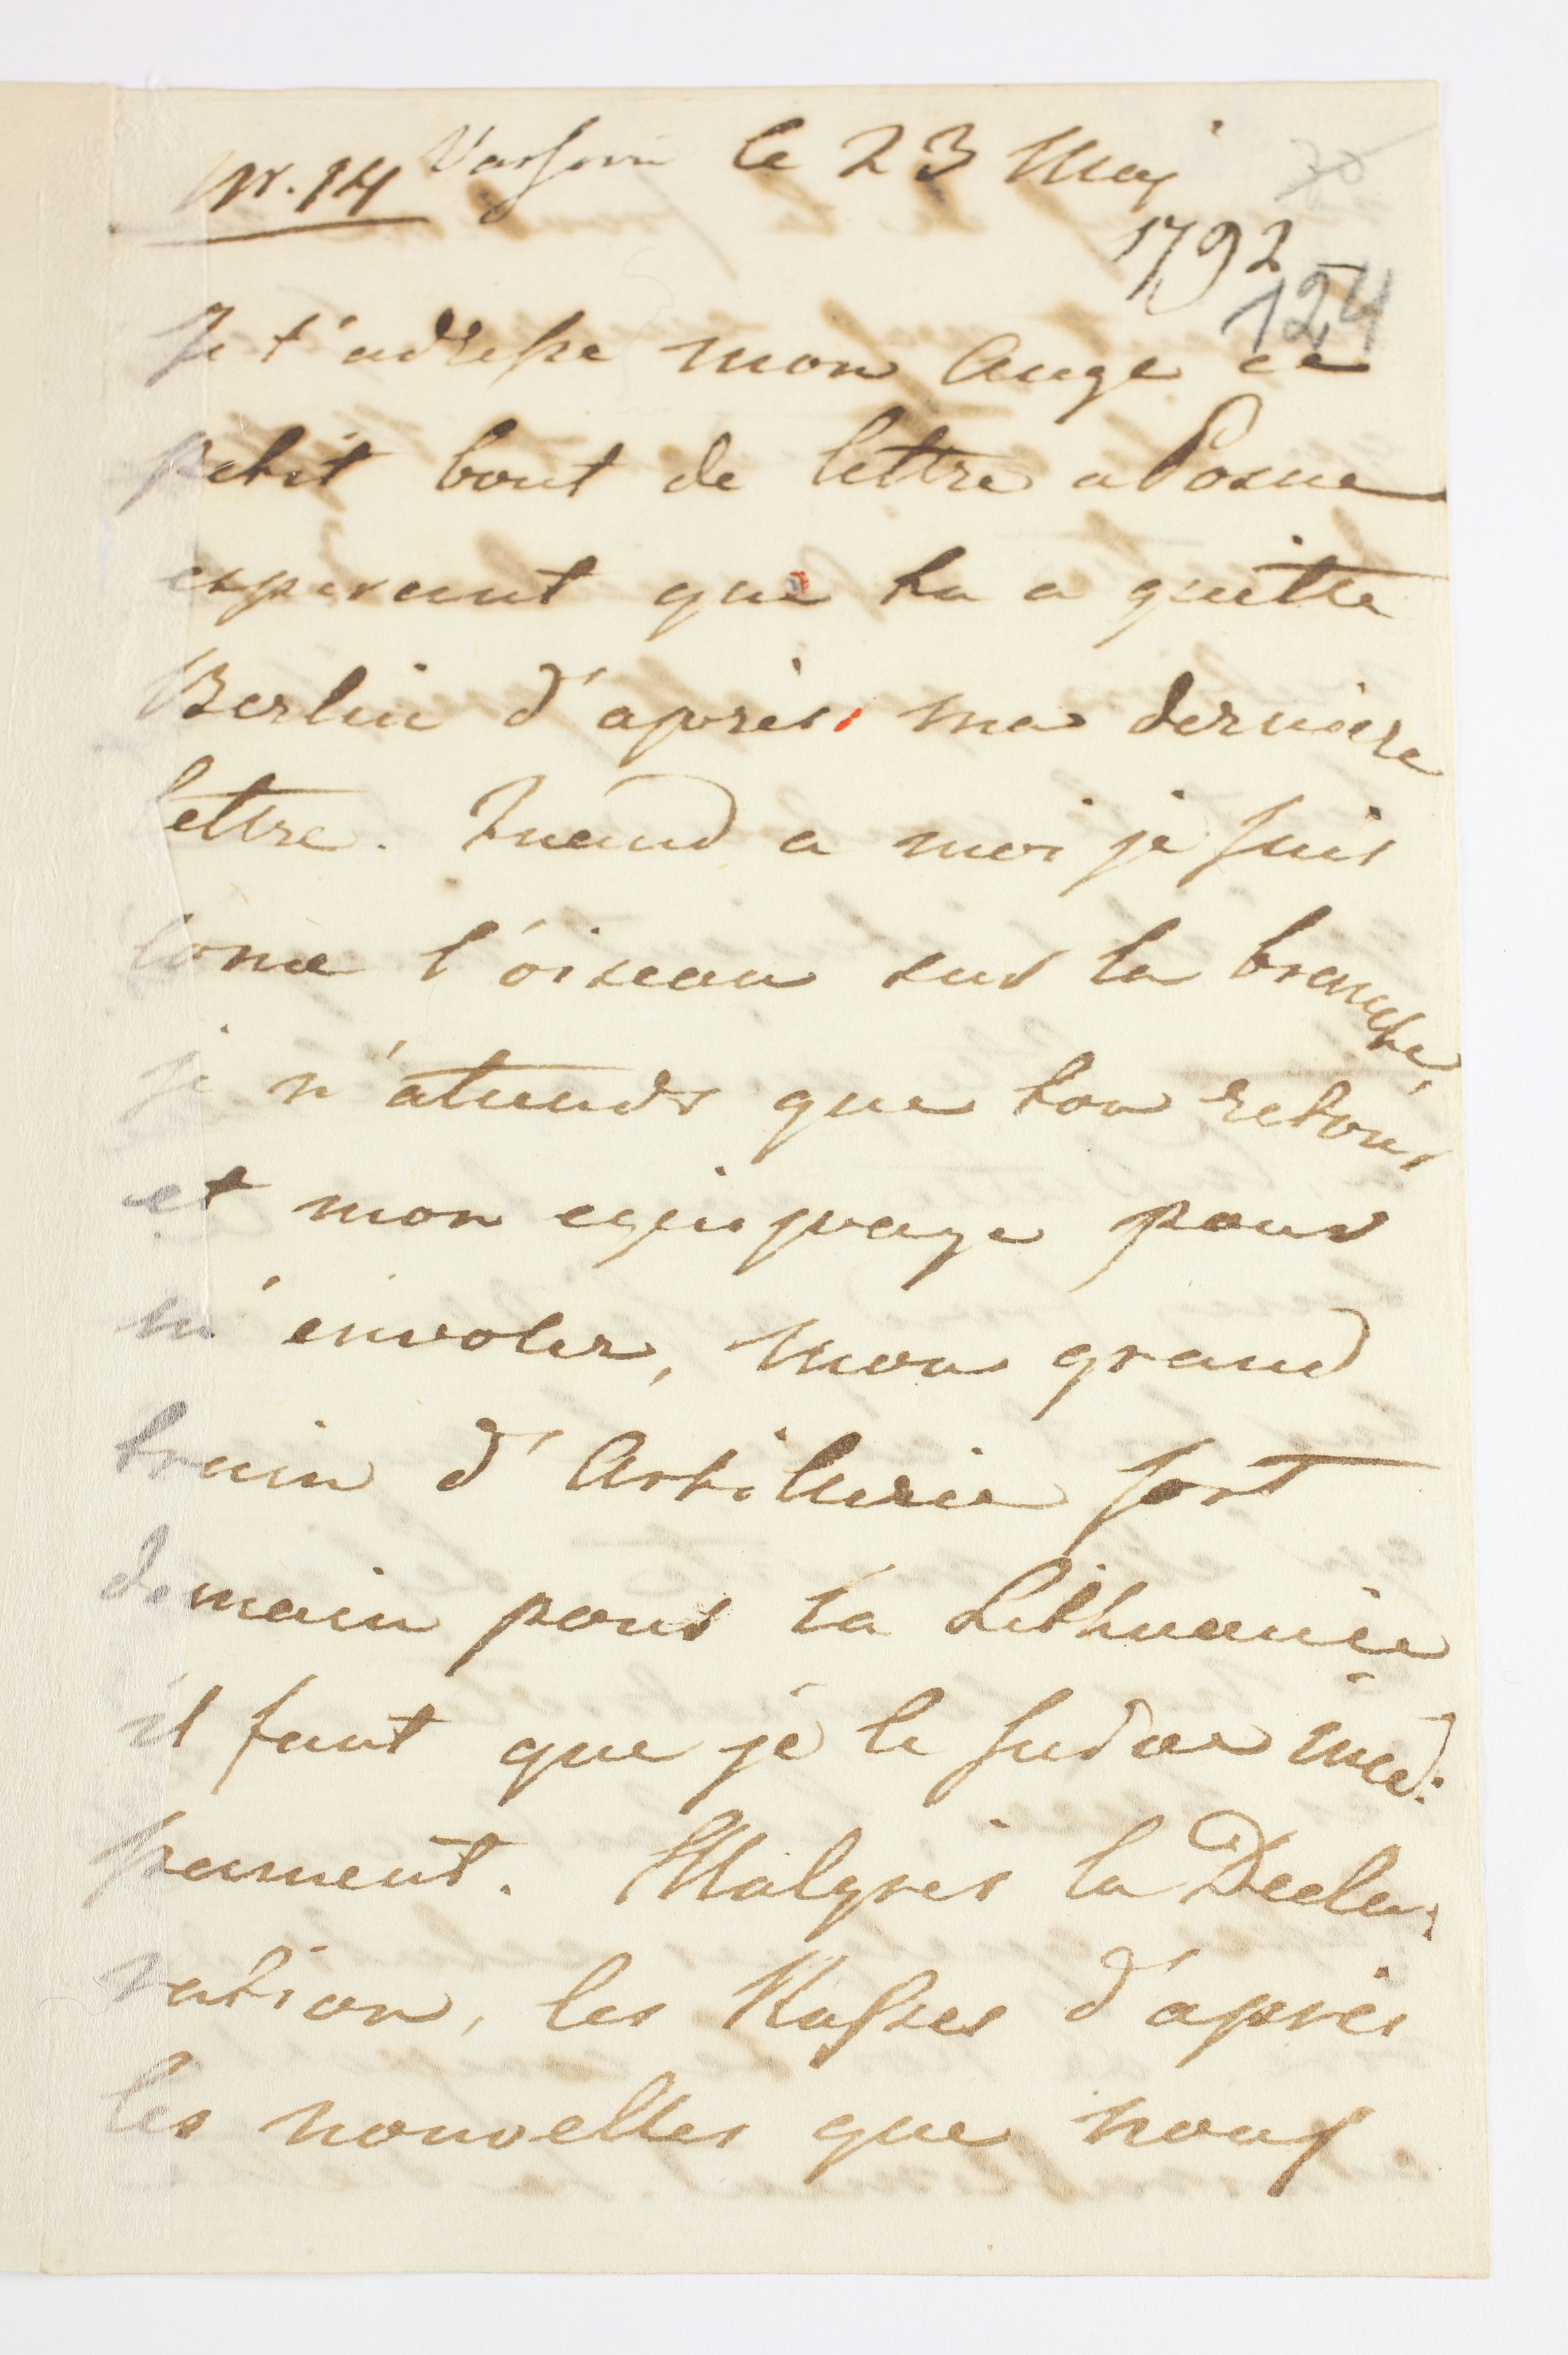 Nr. 14 Varsovie le 23 Maj
1792
124
Je t'adresse mon Ange ce
petit bout de lettre a Posne
esperant que tu a quitte
Berlin d'après ma derniere
lettre. Quand a moi je suis
come l'oiseau sur la branche,
je n'atends que ton retour
et mon equipage pour
m'envoler, mon grand
train d'Artillerie sort
demain pour la Lithuanie
il faut que je le suive
pament. Malgres la Decla,
ration, les Russes d'après
les nouvelles que nous